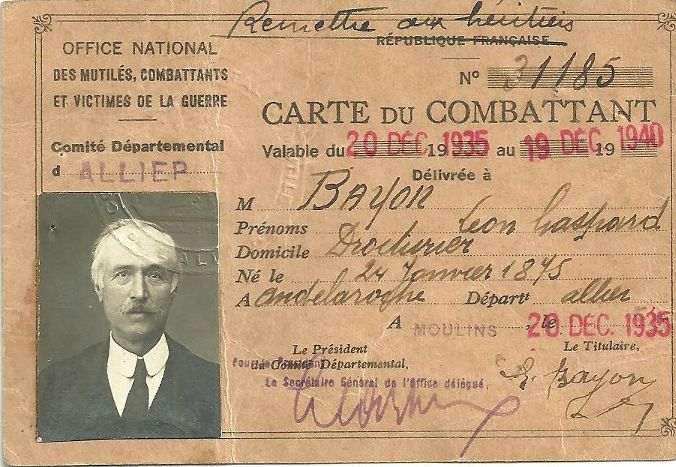 Remettre aux héritiers
RÉPUBLIQUE FRANÇAISE
OFFICE NATIONAL
DES MUTILÉS, COMBATTANTS
ET VICTIMES DE LA GUERRE
Comité Départemental
d ALLIER
Nº 31185
CARTE DU COMBATTANT
Valable du 20 DEC. 19 1935 au 19 DEC. 19 1940
Délivrée à
M BAYON
Prénoms Léon Gaspard
Domicile Droiturier
Né le 24 Janvier 1875
A andelaroche Départt allier
A MOULINS, le 20 DEC. 1935
Le Président
du Comité Départemental,
Pour le Président
Le Secrétaire Général de l'Office délégué,
Le Titulaire,
Bayon